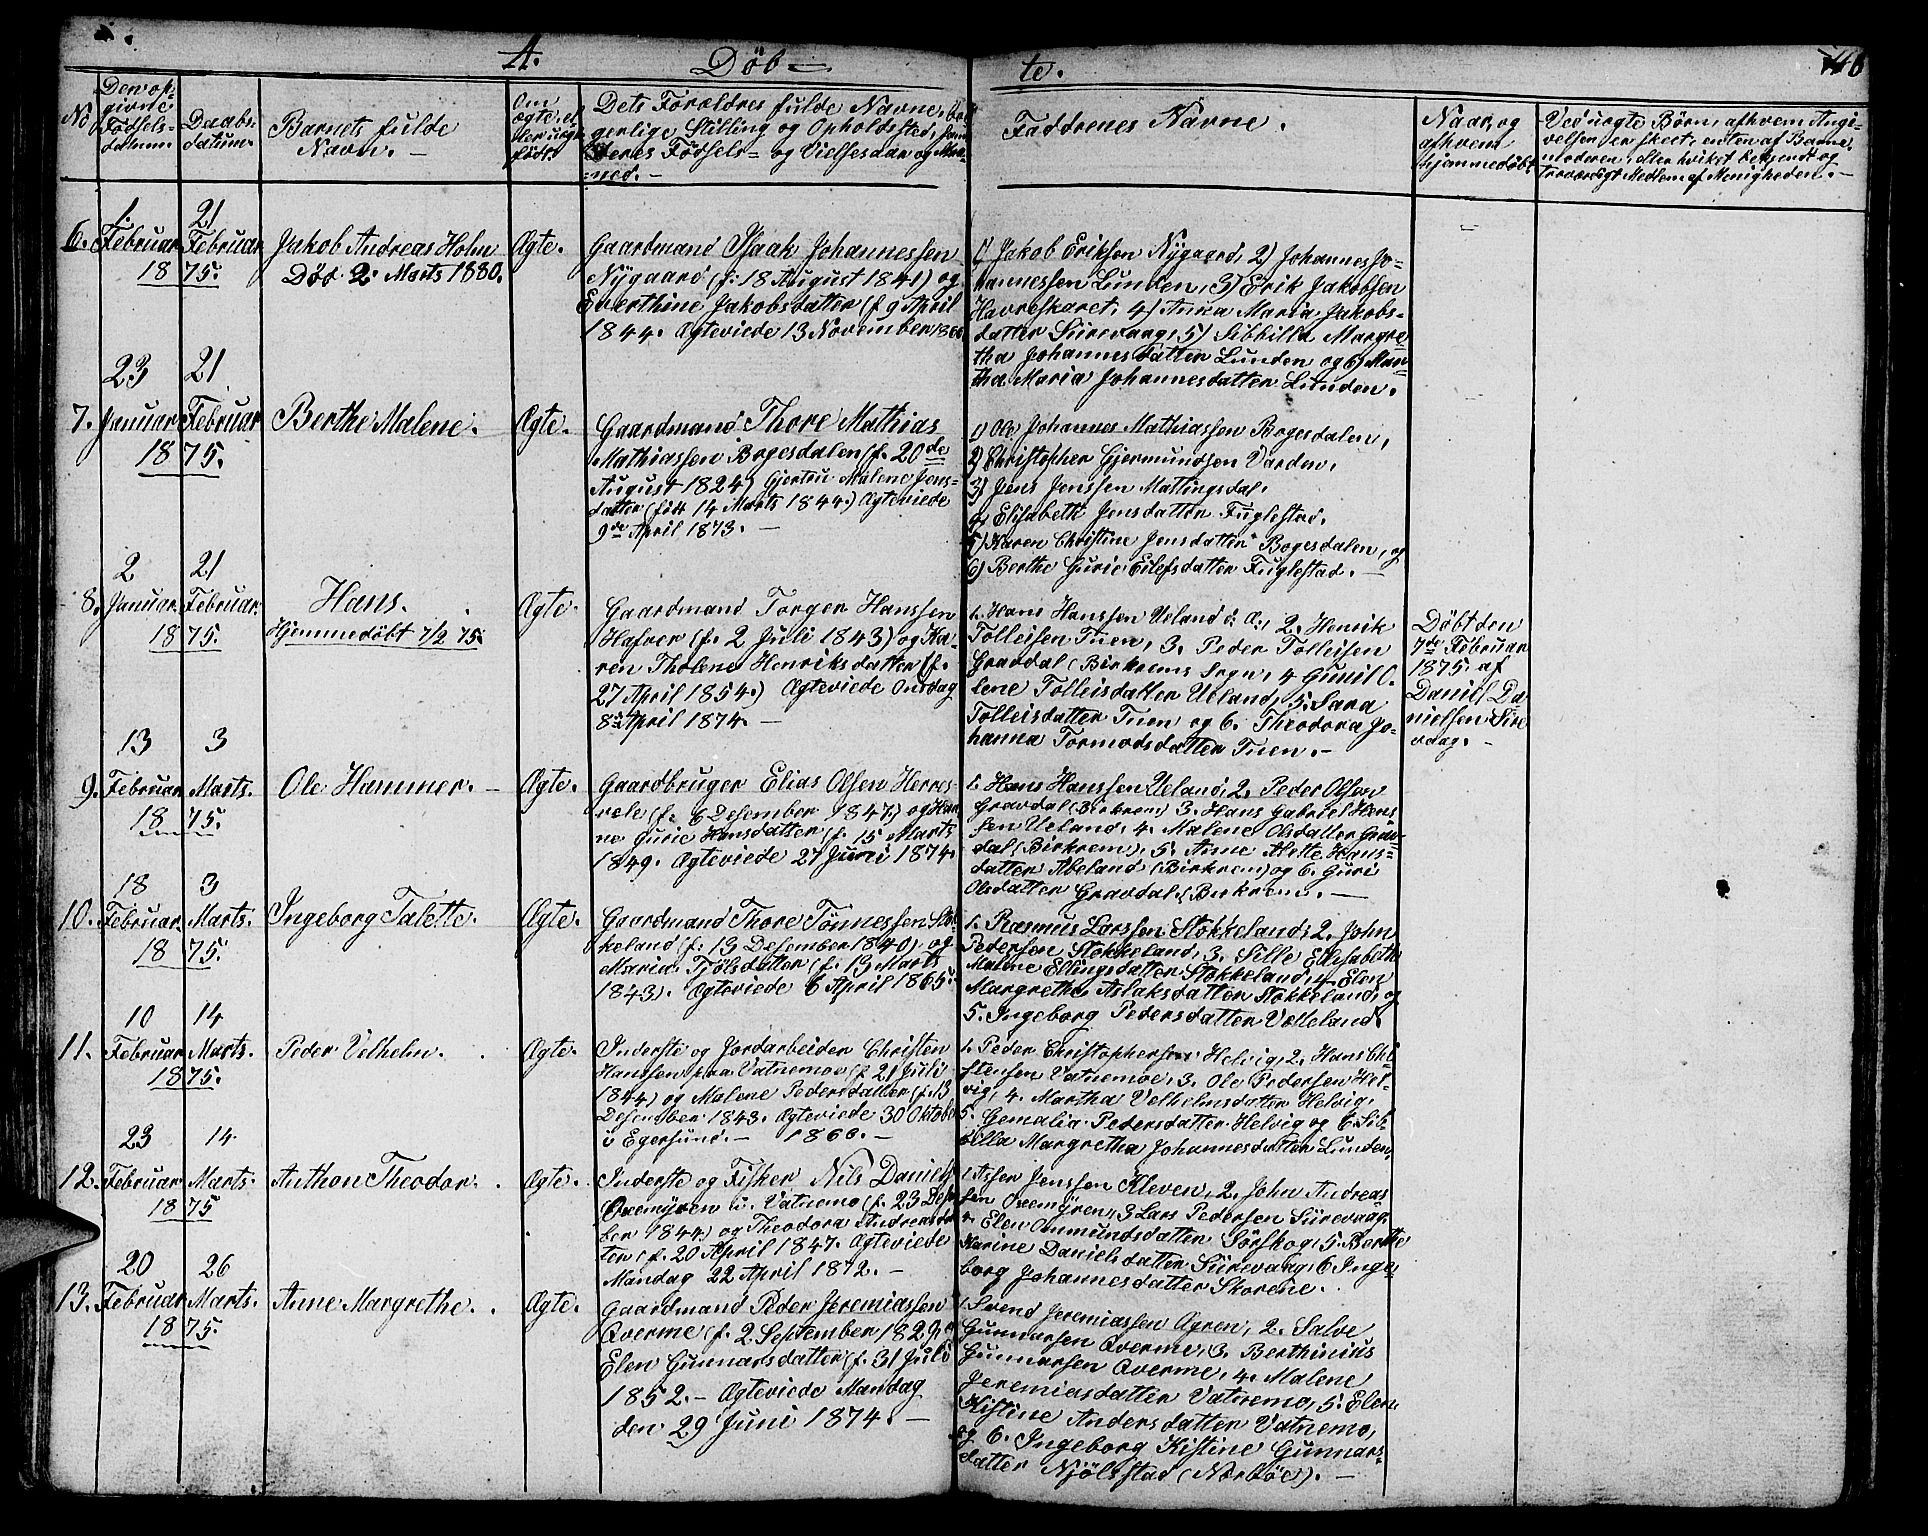 A. Döb-
te.
No
Den op-
givne
Födsels-
datum.
Daabs-
datum.
Barnets fulde
Navn. -
Om
ægte, el-
ler uægte
födt.
Dets Forældres fulde Navne, bor-
gerlige Stilling og Opholdssted, samt
deres Födsels- og Vielsesaar og Maa-
ned. -
Faddrenes Navne.
Naar, og
afhvem
hjemmedöbt.
Ved uægte Börn, afhvem Angi-
velsen er skeet, enten af Barne-
moderen, eller hvilket bekjendt og
troværdigt Medlem af Menigheden. -
6.
1.
Februar
18
21
Februar
75.
Jakob Andreas Holm
Död 2. Marts 1880.
Ægte.
Gaardmand Isaak Johannessen
Nygaard (f. 18 August 1841) og
Everthine Jakobsdatter (f. 9 April
1844. Ægteviede 13 November
1) Jakob Eriksen Nygaard, 2) Johannes Jo-
hannessen Lunden, 3) Erik Jakobsen
Havreskaret, 4) Anna Maria Jakobs-
datter Sirevaag, 5) Sibbilla Margre-
tha Johannesdatter Lunden og 6) Mar-
tha Maria Johannesdatter Lunden.
7.
23
Januar
18
21
Februar
75.
Berthe Malene.
Ægte.
Gaardmand Thore Mathias
Mathiassen Bogesdalen (f. 20de
August 1824) Gjertru Malene Jens-
datter (födt 14 Marts 1844.) Ægteviede
9de April 1873. -
1) Ole Johannes Mathiassen Bogesdalen,
2) Christopher Gjermundsen Varden,
3) Jens Jenssen Mattingsdal.
4) Elisabeth Jensdatter Fuglestad.
5) Karen Christine Jensdatter Bogesdalen, og
6) Berthe Gurie Eilefsdatter Fuglestad. -
8.
2
Januar
18
21
Februar.
75.
Hans.
Hjemmedöbt 7/2 75.
Ægte.
Gaardmand Torger Hanssen
Hafver (f. 2 Juli 1843) og Ka-
ren Tholene Henriksdatter (f.
27 April 1854.) Ægteviede Onsdag
8de April 1874. -
1. Hans Hanssen Ueland d. Æ., 2. Henrik
Tolleisen Tuen, 3. Peder Tolleisen
Gravdal (Birkrems Sogn, 4 Gunil O-
lene Tolleisdatter Ueland, 5. Sara
Tolleisdatter Tuen og 6. Theodora Jo-
hanna Tormodsdatter Tuen. -
Döbt den
7de Februar
1875. af
Daniel Da-
nielsen Sire-
vaag. -
9.
13
Februar
18
3
Marts.
75.
Ole Hammer. -
Ægte.
Gaardbruger Elias Olsen Herres-
vele (f. 6 Desember 1847.) og Han-
ne Gurie Hansdatter (f. 15 Marts
1849. Ægteviede 27 Juni 1874.
1. Hans Hanssen Ueland, 2. Peder Olsen
Gravdal (Birkrem) 3. Hans Gabriel Hans-
sen Ueland, 4. Malene Olsdatter Grav-
dal (Birkrem), 5. Anne Alette Hans-
datter Abeland (Birkrem) og 6. Guri
Olsdatter Gravdal (Birkrem. -
10.
18
Februar.
18
3
Marts.
75.
Ingeborg Talette.
Ægte.
Gaardmand Thore Tönnessen Stok-
keland (f. 13 Desember 1840), og
Maria Tjölsdatter (f. 13 Marts
1843). Ægteviede 6 April 1865.
1. Rasmus Larssen Stokkeland, 2. John
Pedersen Stokkeland, 3. Sille Elisabeth
Malene Ellingsdatter Stokkeland, 4. Elen
Margrethe Aslaksdatter Stokkeland, og
5. Ingeborg Pedersdatter Vælleland.
11.
10
Februar
18
14
Marts.
75.
Peder Velhelm.
Ægte.
Inderste og Jordarbeider Christen
Hanssen paa Vatnemo (f. 21 Juli
1844) og Malene Pedersdatter (f. 13
Desember 1843. Ægteviede 30 Oktober
i Egersund. - 1866. -
1. Peder Christophersen Helvig, 2. Hans Chri-
stensen Vatnemoe, 3. Ole Pedersen Hel-
vig, 4. Martha Velhelmsdatter Helvig,
5. Gemalia Pedersdatter Helvig og 6. Sib-
billa Margretha Johannesdatter Lunden.
12.
23
Februar
18
14
Marts.
75
Anthon Theodor.
Ægte.
Inderste og Fisker Nils Daniels
Oxemyren i Vatnemo (f. 23 Desem-
ber 1844) og Theodora Andreasdat-
ter (f. 20 April 1847. Ægteviede
Mandag 22 April 1872. -
1. Asser Jenssen Kleven, 2. John Andreas-
sen Oxemyren, 3 Lars Pedersen Siirevaag.
4. Elen Ommundsdatter Sörskog, 5. Berthe
Karine Danielsdatter Siirevaag, 6. Inge-
borg Johannesdatter Skorene.
13.
20
Februar
18
26
Marts.
75.
Anne Margrethe.
Ægte.
Gaardmand Peder Jeremiassen
Qverme (f. 2 September 1829, og
Elen Gunnarsdatter (f. 31 Juli
1852. - Ægteviede Mandag
den 29 Juni 1874. -
1. Svend Jeremiassen Ogren, 2. Salve
Gunnarsen Qverme, 3. Berthinius
Gunnarsen Qverme, 4. Malene
Jeremiasdatter Vatnemo, 5. Elen
Kistine Andersdatter Vatnemo,
og 6. Ingeborg Kistine Gunnars-
datter Njölstad (Nærböe). -